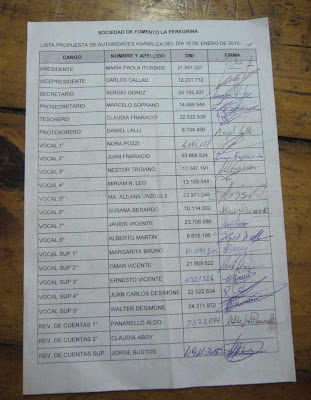 SOCIEDAD DE FOMENTO LA PEREGRINA
LISTA PROPUESTA DE AUTORIDADES ASAMBLEA DEL DÍA 10 DE ENERO DE 2010.-
CARGO NOMBRE Y APELLIDO DNI FIRMA
PRESIDENTE MARÍA PAOLA ITURBIDE 21.551.327
VICEPRESIDENTE CARLOS CALLAU 12.201.712
SECRETARIO SERGIO GEREZ 25.152.207
PROSECRETARIO MARCELO SOPRANO 14.669.944
TESORERO CLAUDIA FRARACIO 22.522.930
PROTESORERO DANIEL LALLI 8.704.496
VOCAL 1° NORA POZZI
VOCAL 2° JUAN FRARACIO 93.966.824
VOCAL 3° NESTOR TROIANO 17.047.191
VOCAL 4° MIRIAM N. LEO 13.156.549
VOCAL 5° MA. ALEANA 20.971.045
VOCAL 6° SUSANA BERARDO 10.114.602
VOCAL 7° JAVIER VICENTE 23.706.066
VOCAL 8° ALBERTO MARTIN 8.615.196
VOCAL SUP 1° MARGARITA BRUNO
VOCAL SUP 2° OMAR VICENTE 21.909.622
VOCAL SUP 3° ERNESTO VICENTE 5321326
VOCAL SUP 4° JUAN CARLOS DESIMONE 22.522.634
VOCAL SUP 5° WALTER DESIMONE 24.371.872
REV. DE CUENTAS 1° PANARELLO ALDO 5322044
REV. DE CUENTAS 2° CLAUDIA ABOY
REV. DE CUENTAS SUP. JORGE BUSTOS